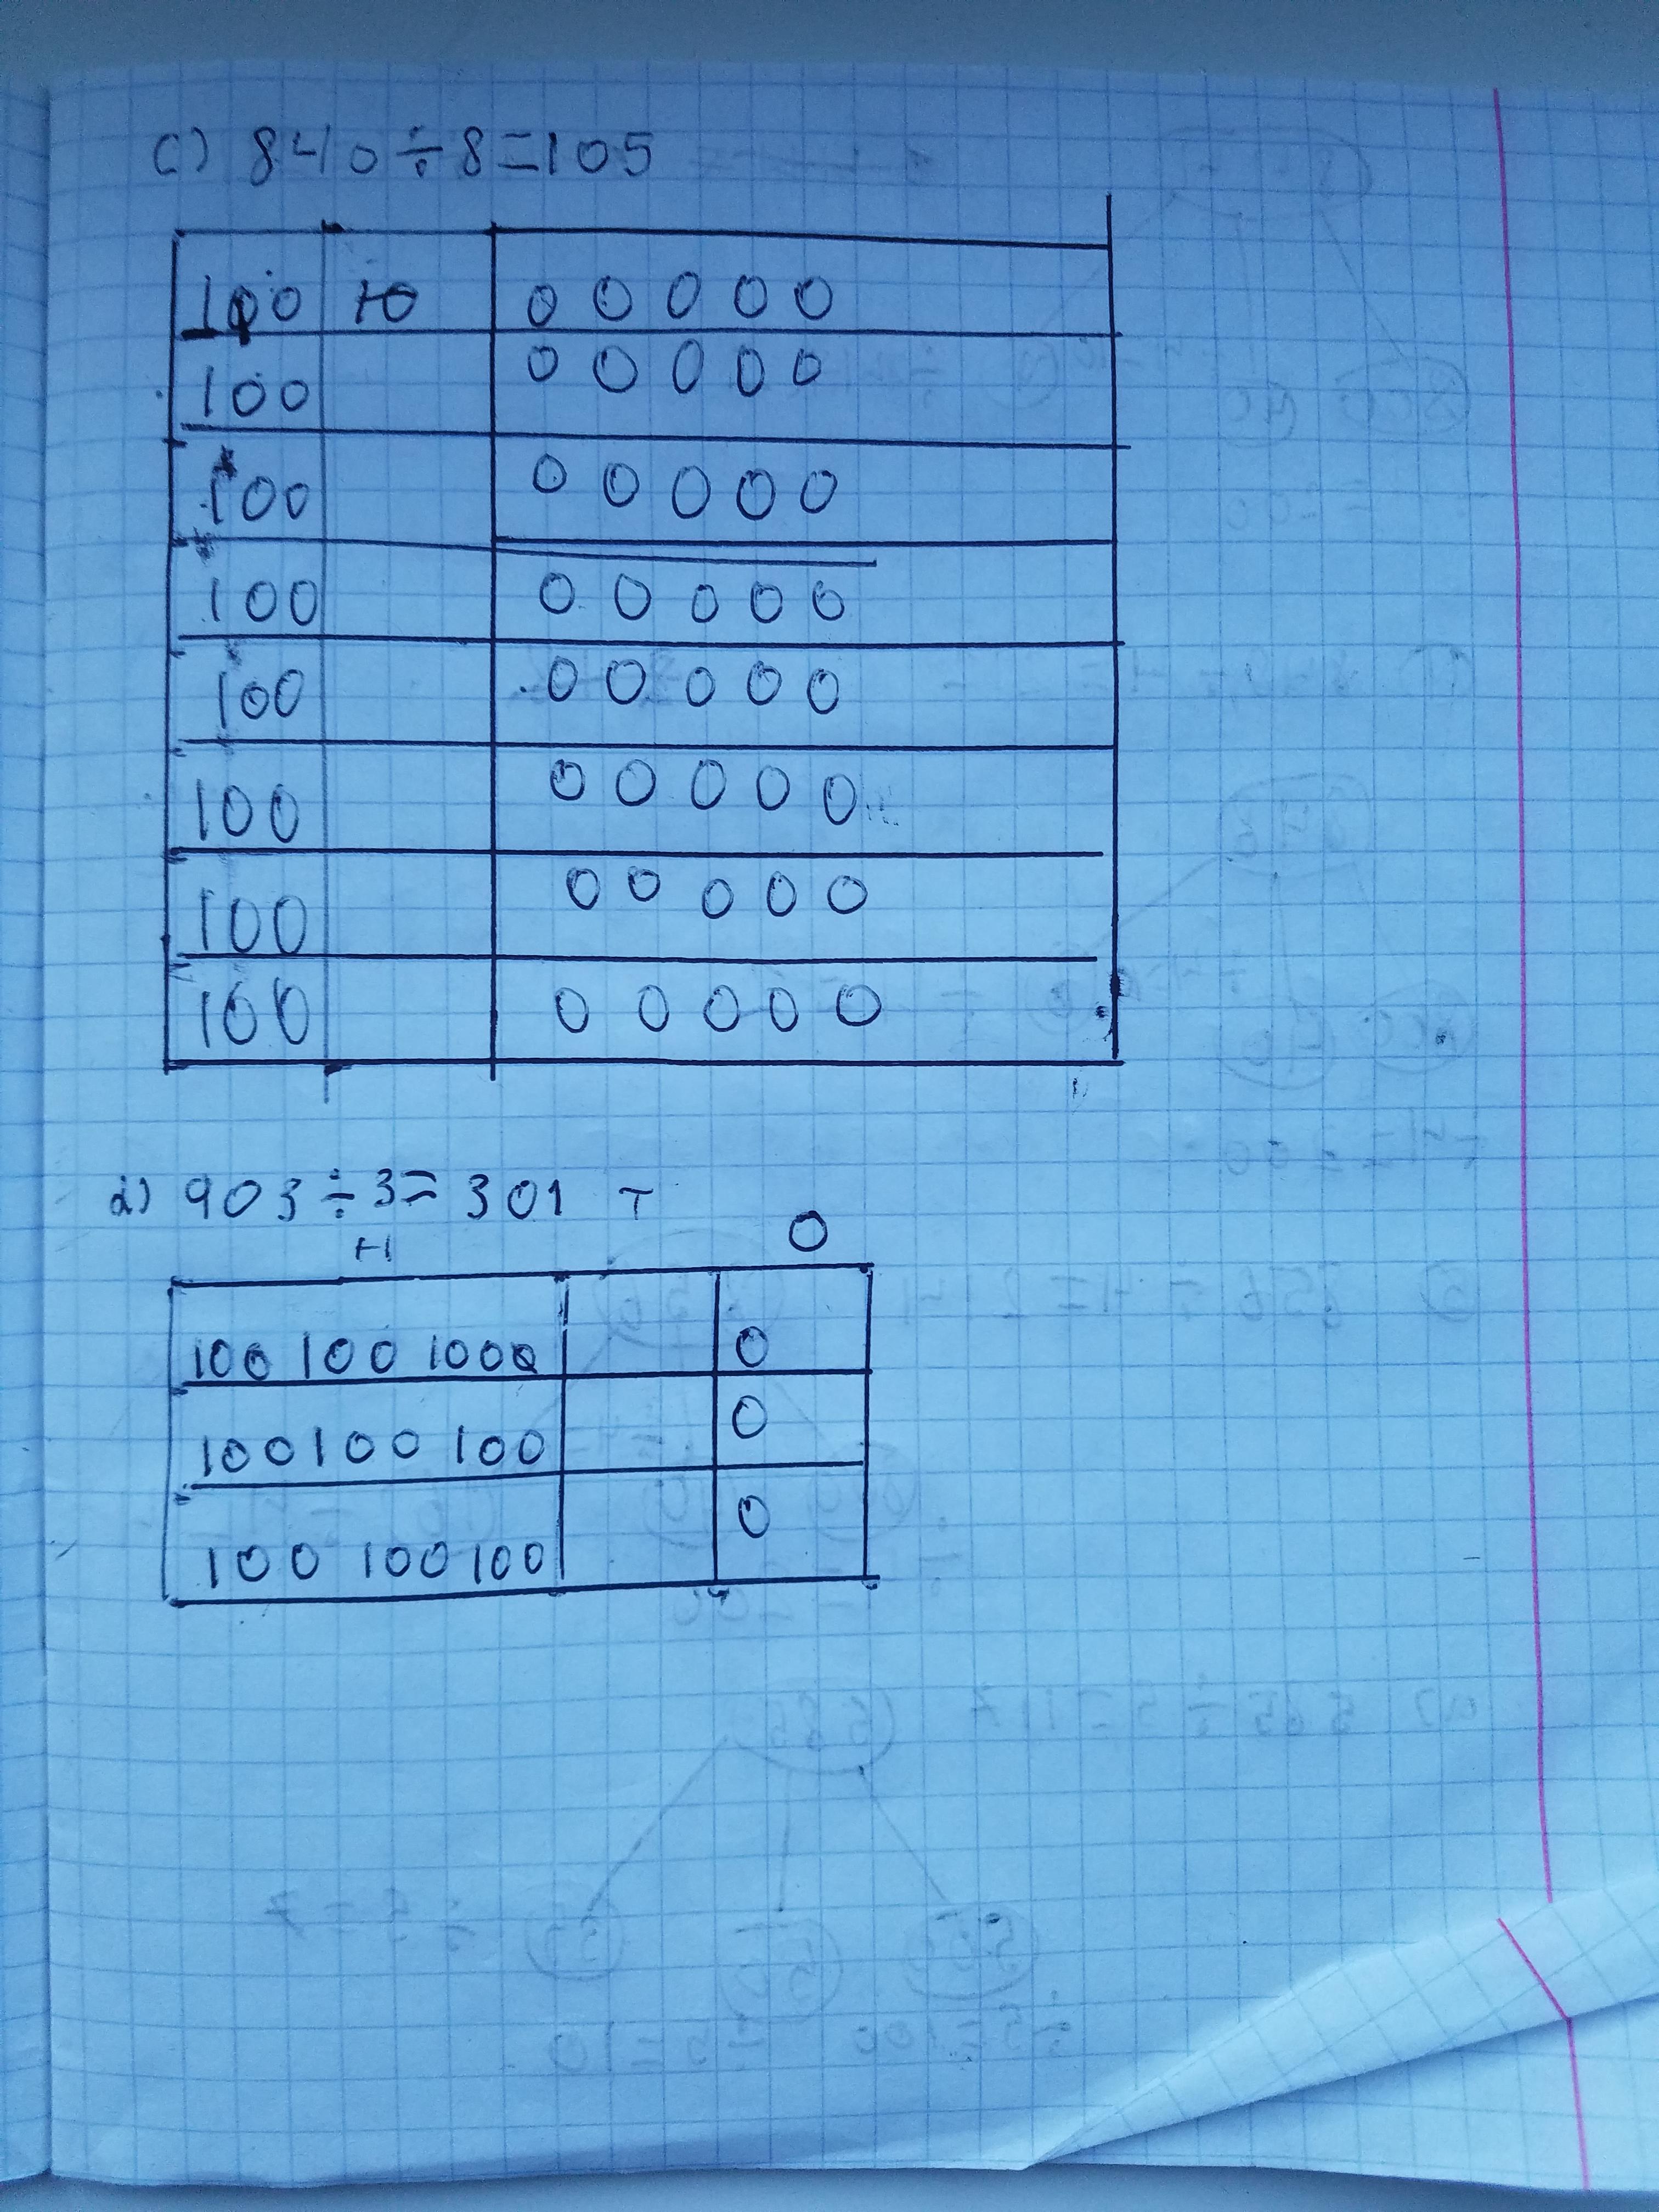 c) 840 ÷ 8 = 105
100 10 0 0 0 0 0
100 0 0 0 0 0
100 0 0 0 0 0
100 0 0 0 0 0
100 0 0 0 0 0
100 0 0 0 0 0
100 0 0 0 0 0
100 0 0 0 0 0
d) 903 ÷ 3 = 301 T
H 0
100 100 1000 0
100 100 100 0
100 100 100 0